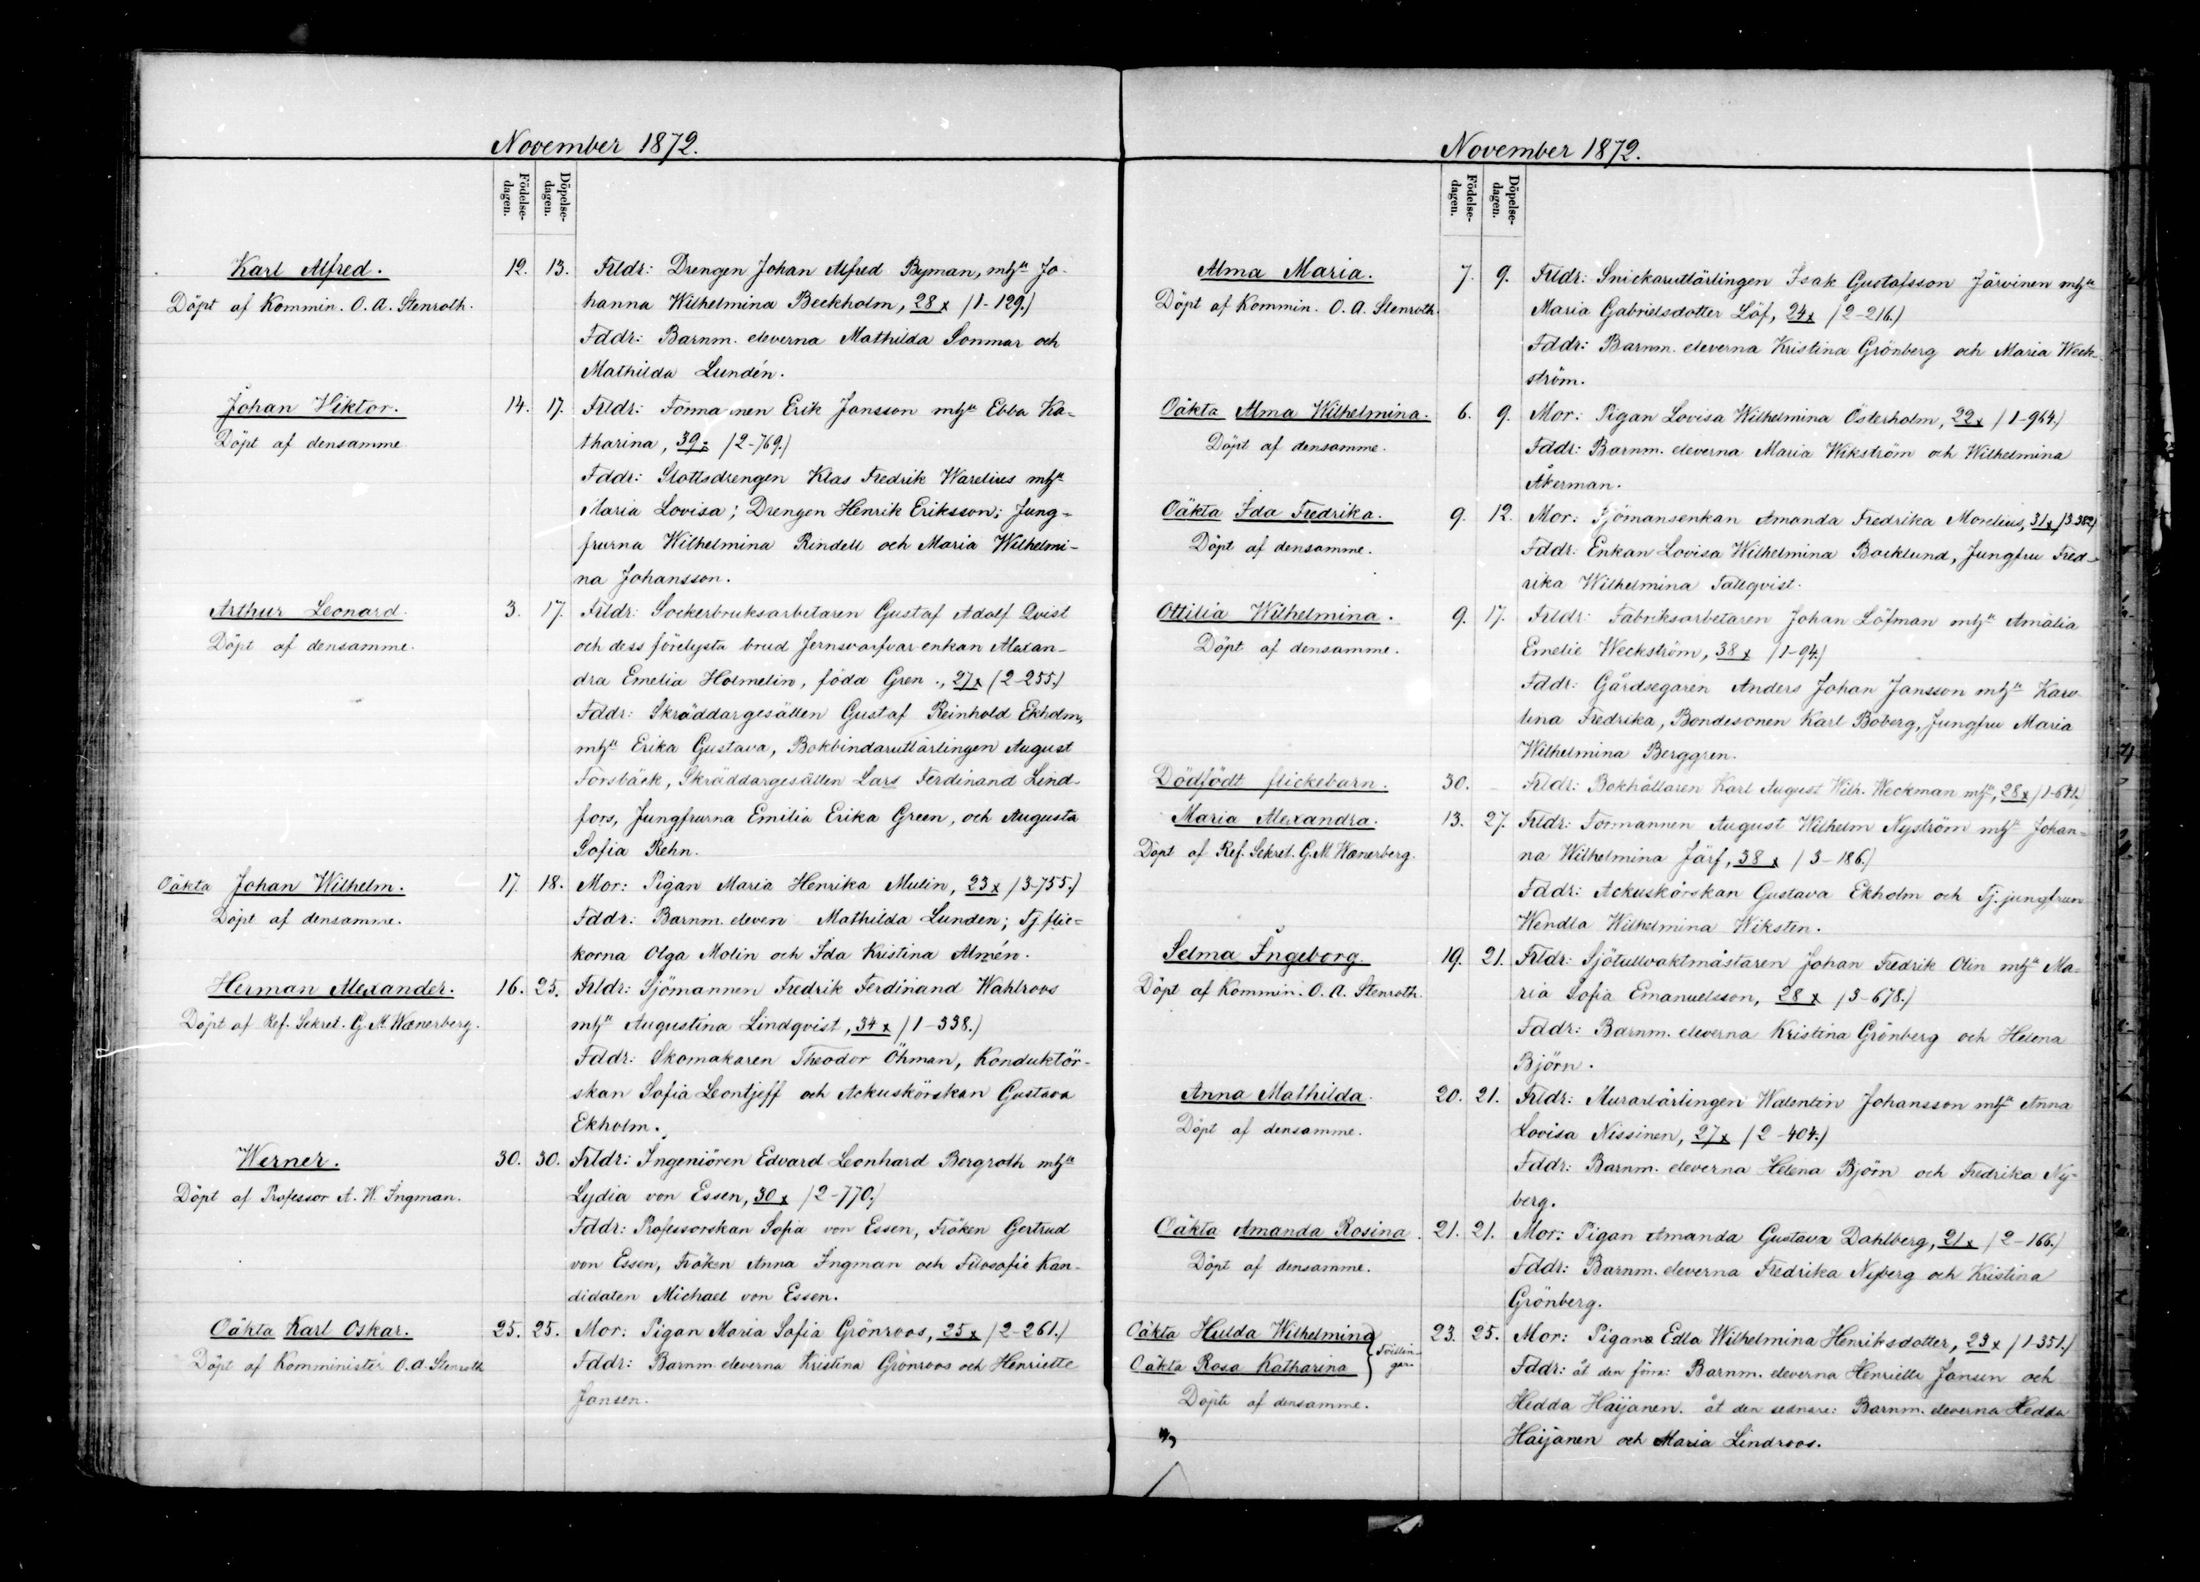 November 1872.
Födelse-
dagen.
Döpelse-
dagen.
Karl Alfred.
Döpt af Kommin. O. A. Stenroth.
12. 13.
Frldr: Drengen Johan Alfred Byman, mhu Jo-
hanna Wilhelmina Beckholm, 28 x (1-129.)
Fddr: Barnm. eleverna Mathilda Sonmar och
Mathilda Lundén.
Johan Viktor.
Döpt af densamme
14. 17.
Frldr: Formannen Erik Jansson mhu Ebba Ka-
tharina, 39 x (2-769.)
Fddr: Slottsdrengen Klas Fredrik Warelius mhu
Maria Lovisa; Drengen Henrik Eriksson; Jung-
frurna Wilhelmina Rindell och Maria Wilhelmi-
na Johansson.
Arthur Leonard.
Döpt af densamme.
3. 17.
Frldr: Sockerbruksarbetaren Gustaf Adolf Qvist
och dess förelysta brud Jernsvarfvar enkan Alexan-
dra Emelia Holmelin, född Gren ., 27 x (2-255.)
Fddr: Skräddargesällen Gustaf Reinhold Ekholm,
mhu Erika Gustava, Bokbindarutlärlingen August
Forsbäck, Skräddargesällen Lars Ferdinand Lind-
fors, Jungfrurna Emilia Erika Green, och Augusta
Sofia Rehn.
Oäkta Johan Wilhelm.
Döpt af densamme.
17. 18.
Mor: Pigan Maria Henrika Mulin, 23 x (3-755.)
Fddr: Barnm. eleven Mathilda Lunden; Tj. flic-
korna Olga Molin och Ida Kristina Almén.
Herman Alexander.
Döpt af Ref. Sekret. G. M. Wænerberg.
16. 25.
Frldr: Sjömannen Fredrik Ferdinand Wahlroos
mhu Augustina Lindqvist, 34 x (1-338.)
Fddr: Skomakaren Theodor Öhman, Konduktör-
skan Sofia Leontjeff och Ackuskörskan Gustava
Ekholm.
Werner.
Döpt af Professor A. W. Ingman.
30. 30.
Frldr: Ingeniören Edvard Leonhard Bergroth mhu
Lydia von Essen, 30 x (2-770.)
Fddr: Professorskan Sofia von Essen, Fröken Gertrud
von Essen, Fröken Anna Ingman och Filosofie Kan-
didaten Michael von Essen.
Oäkta Karl Oskar.
Döpt af Komminister O. A. Stenroth
25. 25.
Mor: Pigan Maria Sofia Grönroos, 25 x (2-261.)
Fddr: Barnm. eleverna Kristina Grönroos och Henriette
Jansen.
November 1872.
Födelse-
dagen.
Döpelse-
dagen.
Alma Maria.
Döpt af Kommin. O. A. Stenroth.
7. 9.
Frldr: Snickarutlärlingen Isak Gustafsson Järvinen mhu
Maria Gabrielsdotter Löf, 24 x (2-216.)
Fddr: Barnm. eleverna Kristina Grönberg och Maria Weck-
ström.
Oäkta Alma Wilhelmina.
Döpt af densamme.
6. 9.
Mor: Pigan Lovisa Wilhelmina Österholm, 22 x (1-964.)
Fddr: Barnm. eleverna Maria Wikström och Wilhelmina
Åkerman.
Oäkta Ida Fredrika.
Döpt af densamme.
9. 12.
Mor: Sjömansenkan Amanda Fredrika Morelius, 31 x (3-382)
Fddr: Enkan Lovisa Wilhelmina Backlund, Jungfru Fred-
rika Wilhelmina Tallqvist.
Ottilia Wilhelmina.
Döpt af densamme.
9. 17.
Frldr: Fabriksarbetaren Johan Löfman mhu Amalia
Emelie Weckström, 38 x (1-94.)
Fddr: Gårdsegaren Anders Johan Jansson mhu Karo-
lina Fredrika, Bondesonen Karl Boberg, Jungfru Maria
Wilhelmina Berggren.
Dödfödt flickebarn.
30. -
Frldr: Bokhållaren Karl August Wilh. Weckman mhu, 28 x
Maria Alexandra.
Döpt af Ref. Sekret. G. M. Wænerberg.
13. 27.
Frldr: Formannen August Wilhelm Nyström mhu Johan-
na Wilhelmina Järf, 38 x (3-186.)
Fddr: Ackuskörskan Gustava Ekholm och Tj. jungfrun
Wendla Wilhelmina Wiksten.
Selma Ingeborg.
Döpt af Kommin. O. A. Stenroth.
19. 21.
Frldr: Sjötullvaktmästaren Johan Fredrik Olin mhu Ma-
ria Sofia Emanuelsson, 28 x (3-678.)
Fddr: Barnm. eleverna Kristina Grönberg och Helena
Björn.
Anna Mathilda.
Döpt af densamme.
20. 21.
Frldr: Murarlärlingen Walentin Johansson mhu Anna
Lovisa Nissinen, 27 x (2-404.)
Fddr: Barnm. eleverna Helena Björn och Fredrika Ny-
berg.
Oäkta Amanda Rosina.
Döpt af densamme.
21. 21.
Mor: Pigan Amanda Gustava Dahlberg, 21 x (2-166.)
Fddr: Barnm. eleverna Fredrika Nyberg och Kristina
Grönberg.
Oäkta Hulda Wilhelmina
Oäkta Rosa Katharina
Tvillin-
gar.
Döpte af densamme.
23. 25.
Mor: Pigan Edla Wilhelmina Henriksdotter, 23 x (1-351.)
Fddr: åt den förra: Barnm. eleverna Henriette Jansen och
Hedda Haijanen. åt den sednare: Barnm. eleverna Hedda
Haijanen och Maria Lindroos.